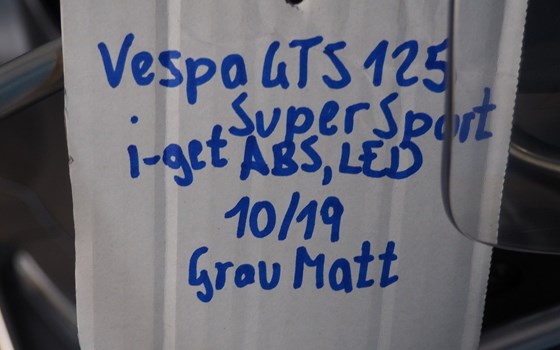 Vespa GTS 125
Super Sport
i-get ABS, LED
10/19
Grau Matt